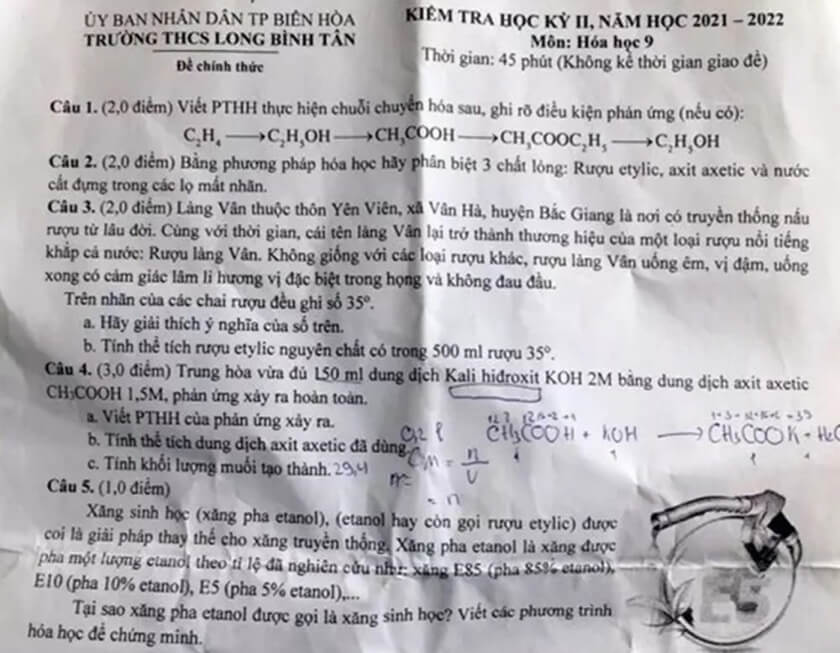 ỦY BAN NHÂN DÂN TP BIÊN HÒA
TRƯỜNG THCS LONG BÌNH TÂN
Đề chính thức
KIỂM TRA HỌC KỲ II, NĂM HỌC 2021 – 2022
Môn: Hóa học 9
Thời gian: 45 phút (Không kể thời gian giao đề)
Câu 1. (2,0 điểm) Viết PTHH thực hiện chuỗi chuyển hóa sau, ghi rõ điều kiện phản ứng (nếu có):
C₂H₄ ⟶ C₂H₅OH ⟶ CH₃COOH ⟶ CH₃COOC₂H₅ ⟶ C₂H₅OH
Câu 2. (2,0 điểm) Bằng phương pháp hóa học hãy phân biệt 3 chất lỏng: Rượu etylic, axit axetic và nước
cất đựng trong các lọ mất nhãn.
Câu 3. (2,0 điểm) Làng Vân thuộc thôn Yên Viên, xã Vân Hà, huyện Bắc Giang là nơi có truyền thống nấu
rượu từ lâu đời. Cùng với thời gian, cái tên làng Vân lại trở thành thương hiệu của một loại rượu nổi tiếng
khắp cả nước: Rượu làng Vân. Không giống với các loại rượu khác, rượu làng Vân uống êm, vị đậm, uống
xong có cảm giác lâm li hương vị đặc biệt trong họng và không đau đầu.
Trên nhãn của các chai rượu đều ghi số 35º.
a. Hãy giải thích ý nghĩa của số trên.
b. Tính thể tích rượu etylic nguyên chất có trong 500 ml rượu 35º.
Câu 4. (3,0 điểm) Trung hòa vừa đủ 150 ml dung dịch Kali hiđroxit KOH 2M bằng dung dịch axit axetic
CH₃COOH 1,5M, phản ứng xảy ra hoàn toàn.
a. Viết PTHH của phản ứng xảy ra.
b. Tính thể tích dung dịch axit axetic đã dùng.
c. Tính khối lượng muối tạo thành. 29,4
CH₃COOH + KOH ⟶ CH₃COOK + H₂O
CM = n/V
= n
Câu 5. (1,0 điểm)
Xăng sinh học (xăng pha etanol), (etanol hay còn gọi rượu etylic) được
coi là giải pháp thay thế cho xăng truyền thống. Xăng pha etanol là xăng được
pha một lượng etanol theo tỉ lệ đã nghiên cứu như: xăng E85 (pha 85% etanol),
E10 (pha 10% etanol), E5 (pha 5% etanol),...
Tại sao xăng pha etanol được gọi là xăng sinh học? Viết các phương trình
hóa học để chứng minh.
E5